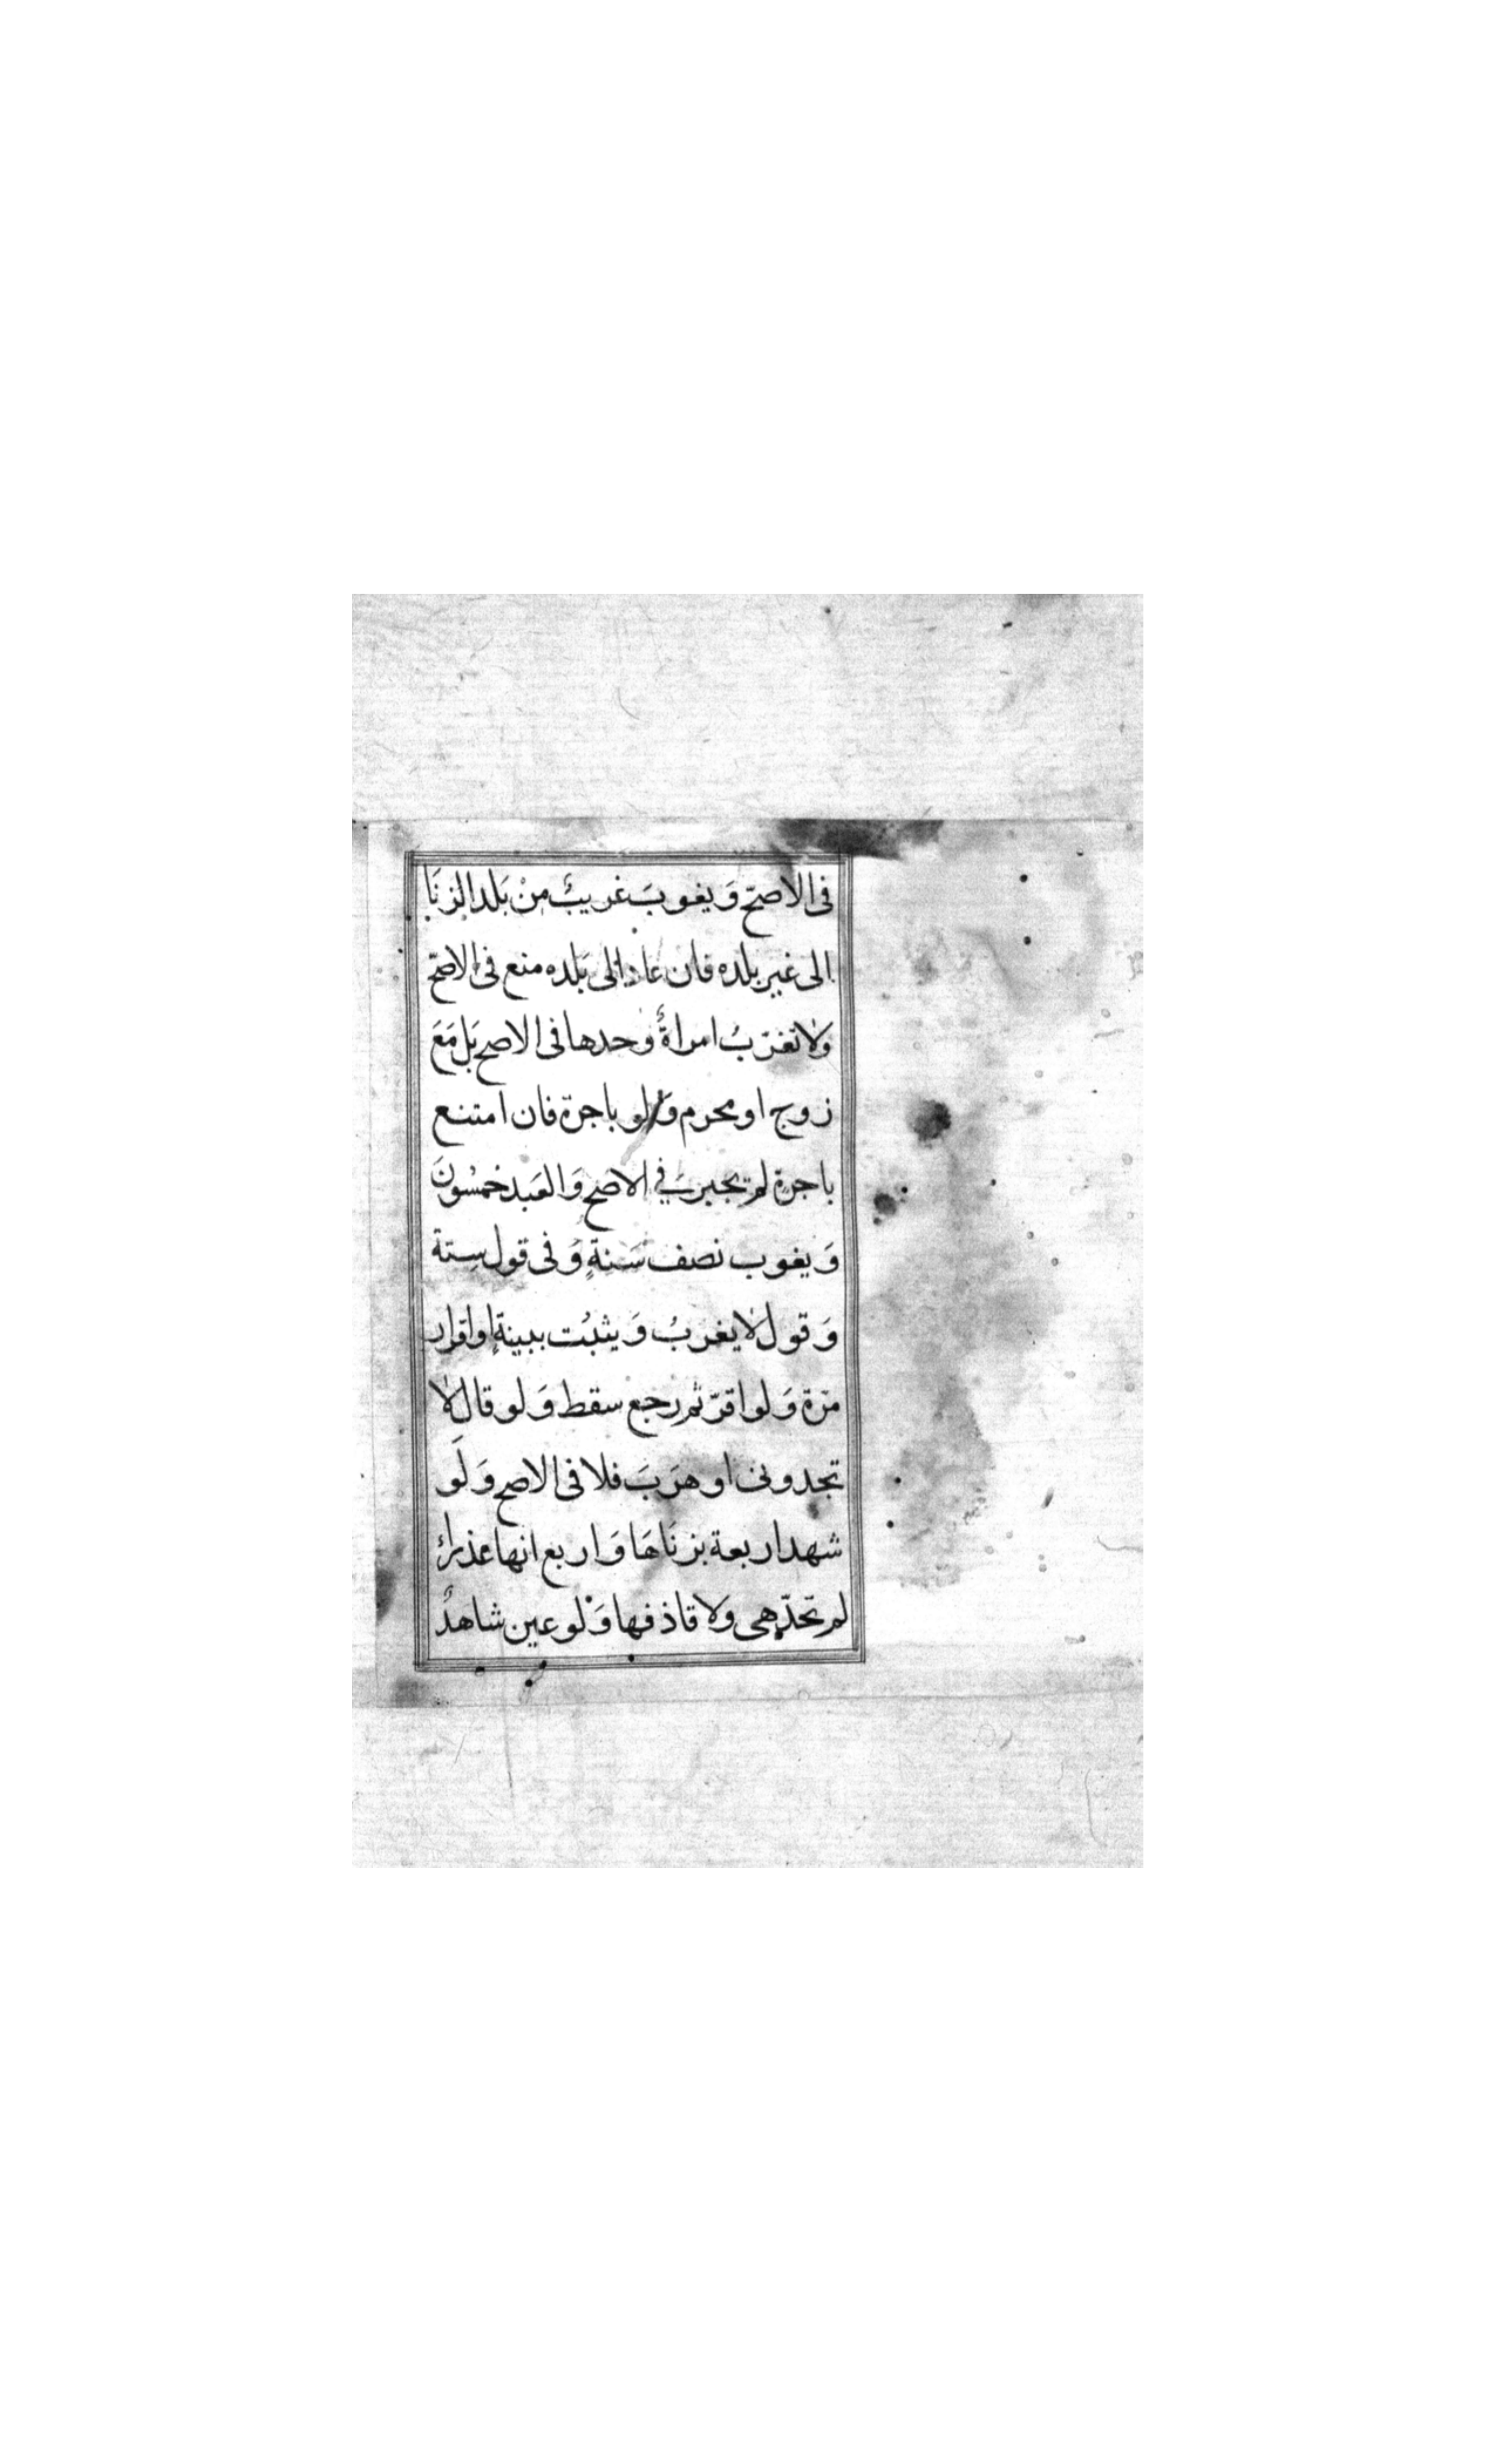 فى الاصحّ وَيغوبَ غريبٌ مِنْ بَلد الزنَا
الى غير بلده فان عاد الى بَلده منع فى الاصحّ
وَلا تغرّبُ امراةٌ وَحدها فى الاصح بَل مَعَ
زوج او محرم وَلو باجرة فان امتنع
باجرة لم يجبرَ في الاصح وَالعَبد خمسُونَ
وَيغوب نصف سَنةٍ وَفى قول ستة
وَقول لا يغربُ وَيثبُت ببينةٍ او اقرار
مرّة وَلو اقرّ ثم رجع سقط وَلو قال لا
تجدونى او هرَبَ فلا فى الاصح وَلَو
شهد اربعة بزنَاهَا وَاربع انها عذراءُ
لم تحدّ هى وَلا قاذفها وَلو عين شاهدٌ